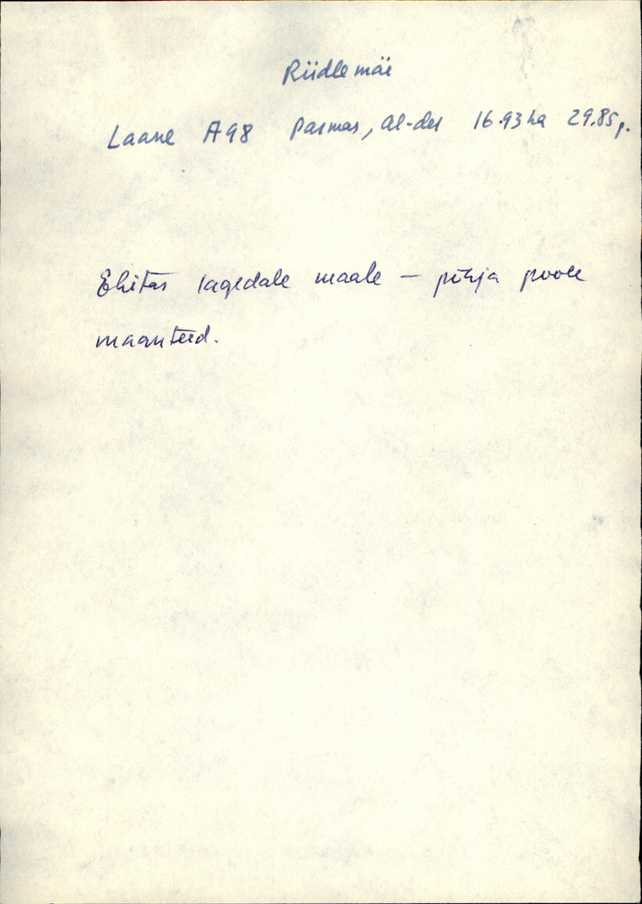 Riidlemäe
Laane A98 Parmas, Al-der 16.93 ha 29.85 p.
Ehitas lagedale maale — põhja poole
maanteed.